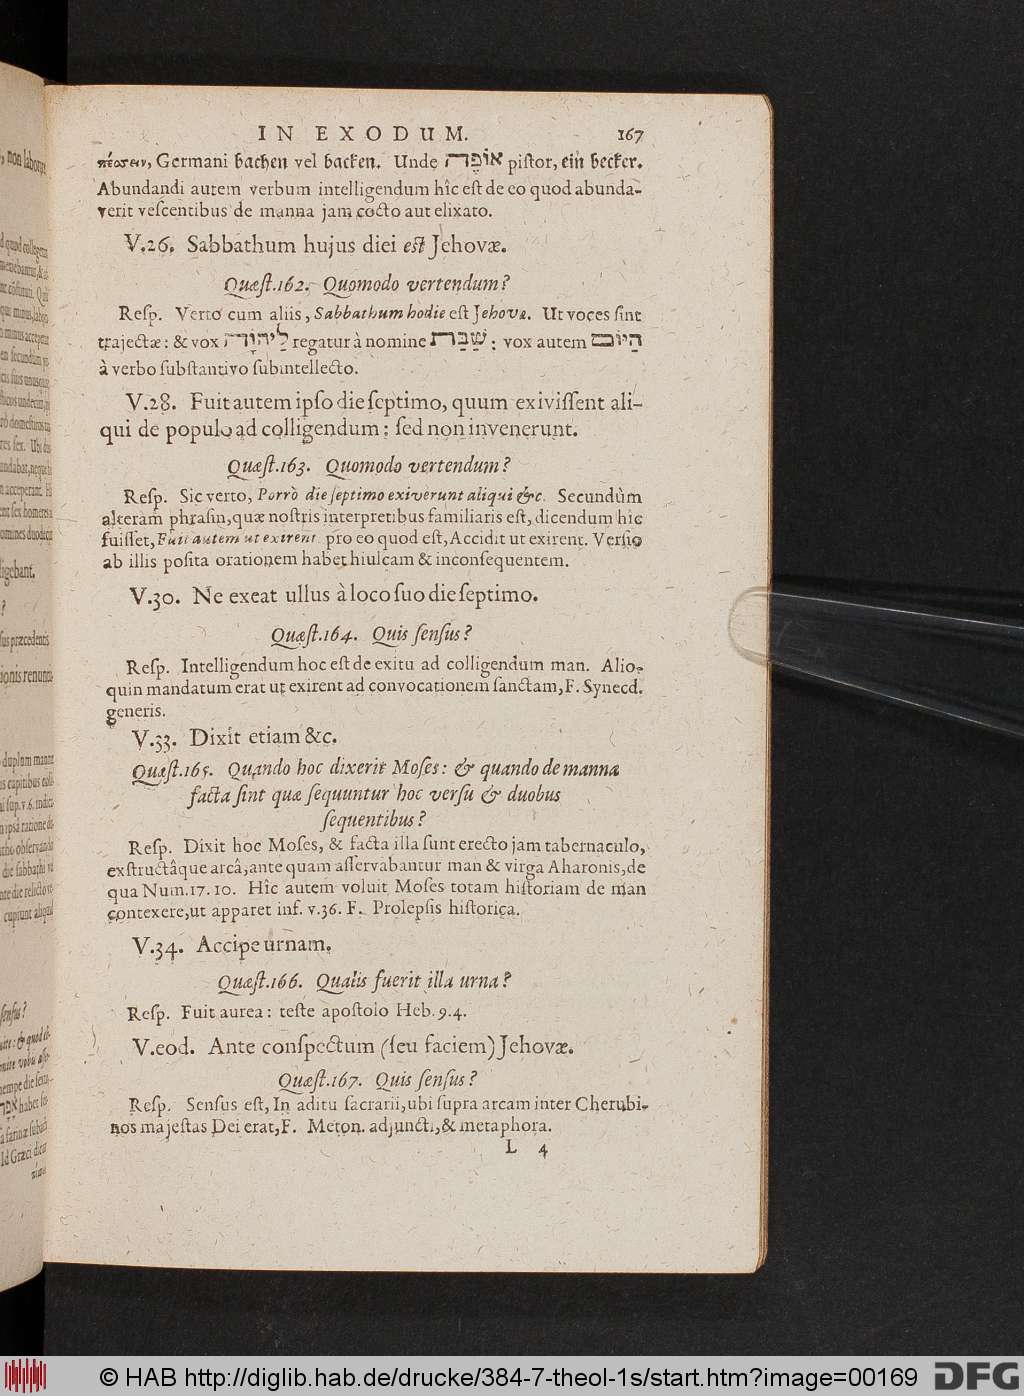 IN EXODUM. 167
Germani bachen vel backen. Unde אוֹפֶה pistor, ein becker.
Abundandi autem verbum intelligendum hîc est de eo quod abunda-
verit vescentibus de manna jam cocto aut elixato.
V.26. Sabbathum hujus diei est Jehovæ.
Quæst.162. Quomodo vertendum?
Resp. Verto cum aliis, Sabbathum hodie est Jehovæ. Ut voces sint
trajectæ: & vox לַיהוָֹה regatur à nomine שַׁבַּת: vox autem הַיּוֹם
à verbo substantivo subintellecto.
V.28. Fuit autem ipso die septimo, quum exivissent ali-
qui de populo ad colligendum: sed non invenerunt.
Quæst.163. Quomodo vertendum?
Resp. Sic verto, Porrò die septimo exiverunt aliqui &c. Secundùm
alteram phrasin, quæ nostris interpretibus familiaris est, dicendum hîc
fuisset, Fuit autem ut exirent pro eo quod est, Accidit ut exirent. Versio
ab illis posita orationem habet hiulcam & inconsequentem.
V.30. Ne exeat ullus à loco suo die septimo.
Quæst.164. Quis sensus?
Resp. Intelligendum hoc est de exitu ad colligendum man. Alio-
quin mandatum erat ut exirent ad convocationem sanctam, F. Synecd.
generis.
V.33. Dixit etiam &c.
Quæst.165. Quando hoc dixerit Moses: & quando de manna
facta sint quæ sequuntur hoc versu & duobus
sequentibus?
Resp. Dixit hoc Moses, & facta illa sunt erecto jam tabernaculo,
exstructâque arcâ, ante quam asservabantur man & virga Aharonis, de
qua Num.17.10. Hîc autem voluit Moses totam historiam de man
contexere, ut apparet inf. v.36. F. Prolepsis historica.
V.34. Accipe urnam.
Quæst.166. Qualis fuerit illa urna?
Resp. Fuit aurea: teste apostolo Heb.9.4.
V.eod. Ante conspectum (seu faciem) Jehovæ.
Quæst.167. Quis sensus?
Resp. Sensus est, In aditu sacrarii, ubi supra arcam inter Cherubi-
nos majestas Dei erat, F. Meton. adjuncti, & metaphora.
L 4
© HAB http://diglib.hab.de/drucke/384-7-theol-1s/start.htm?image=00169 DFG